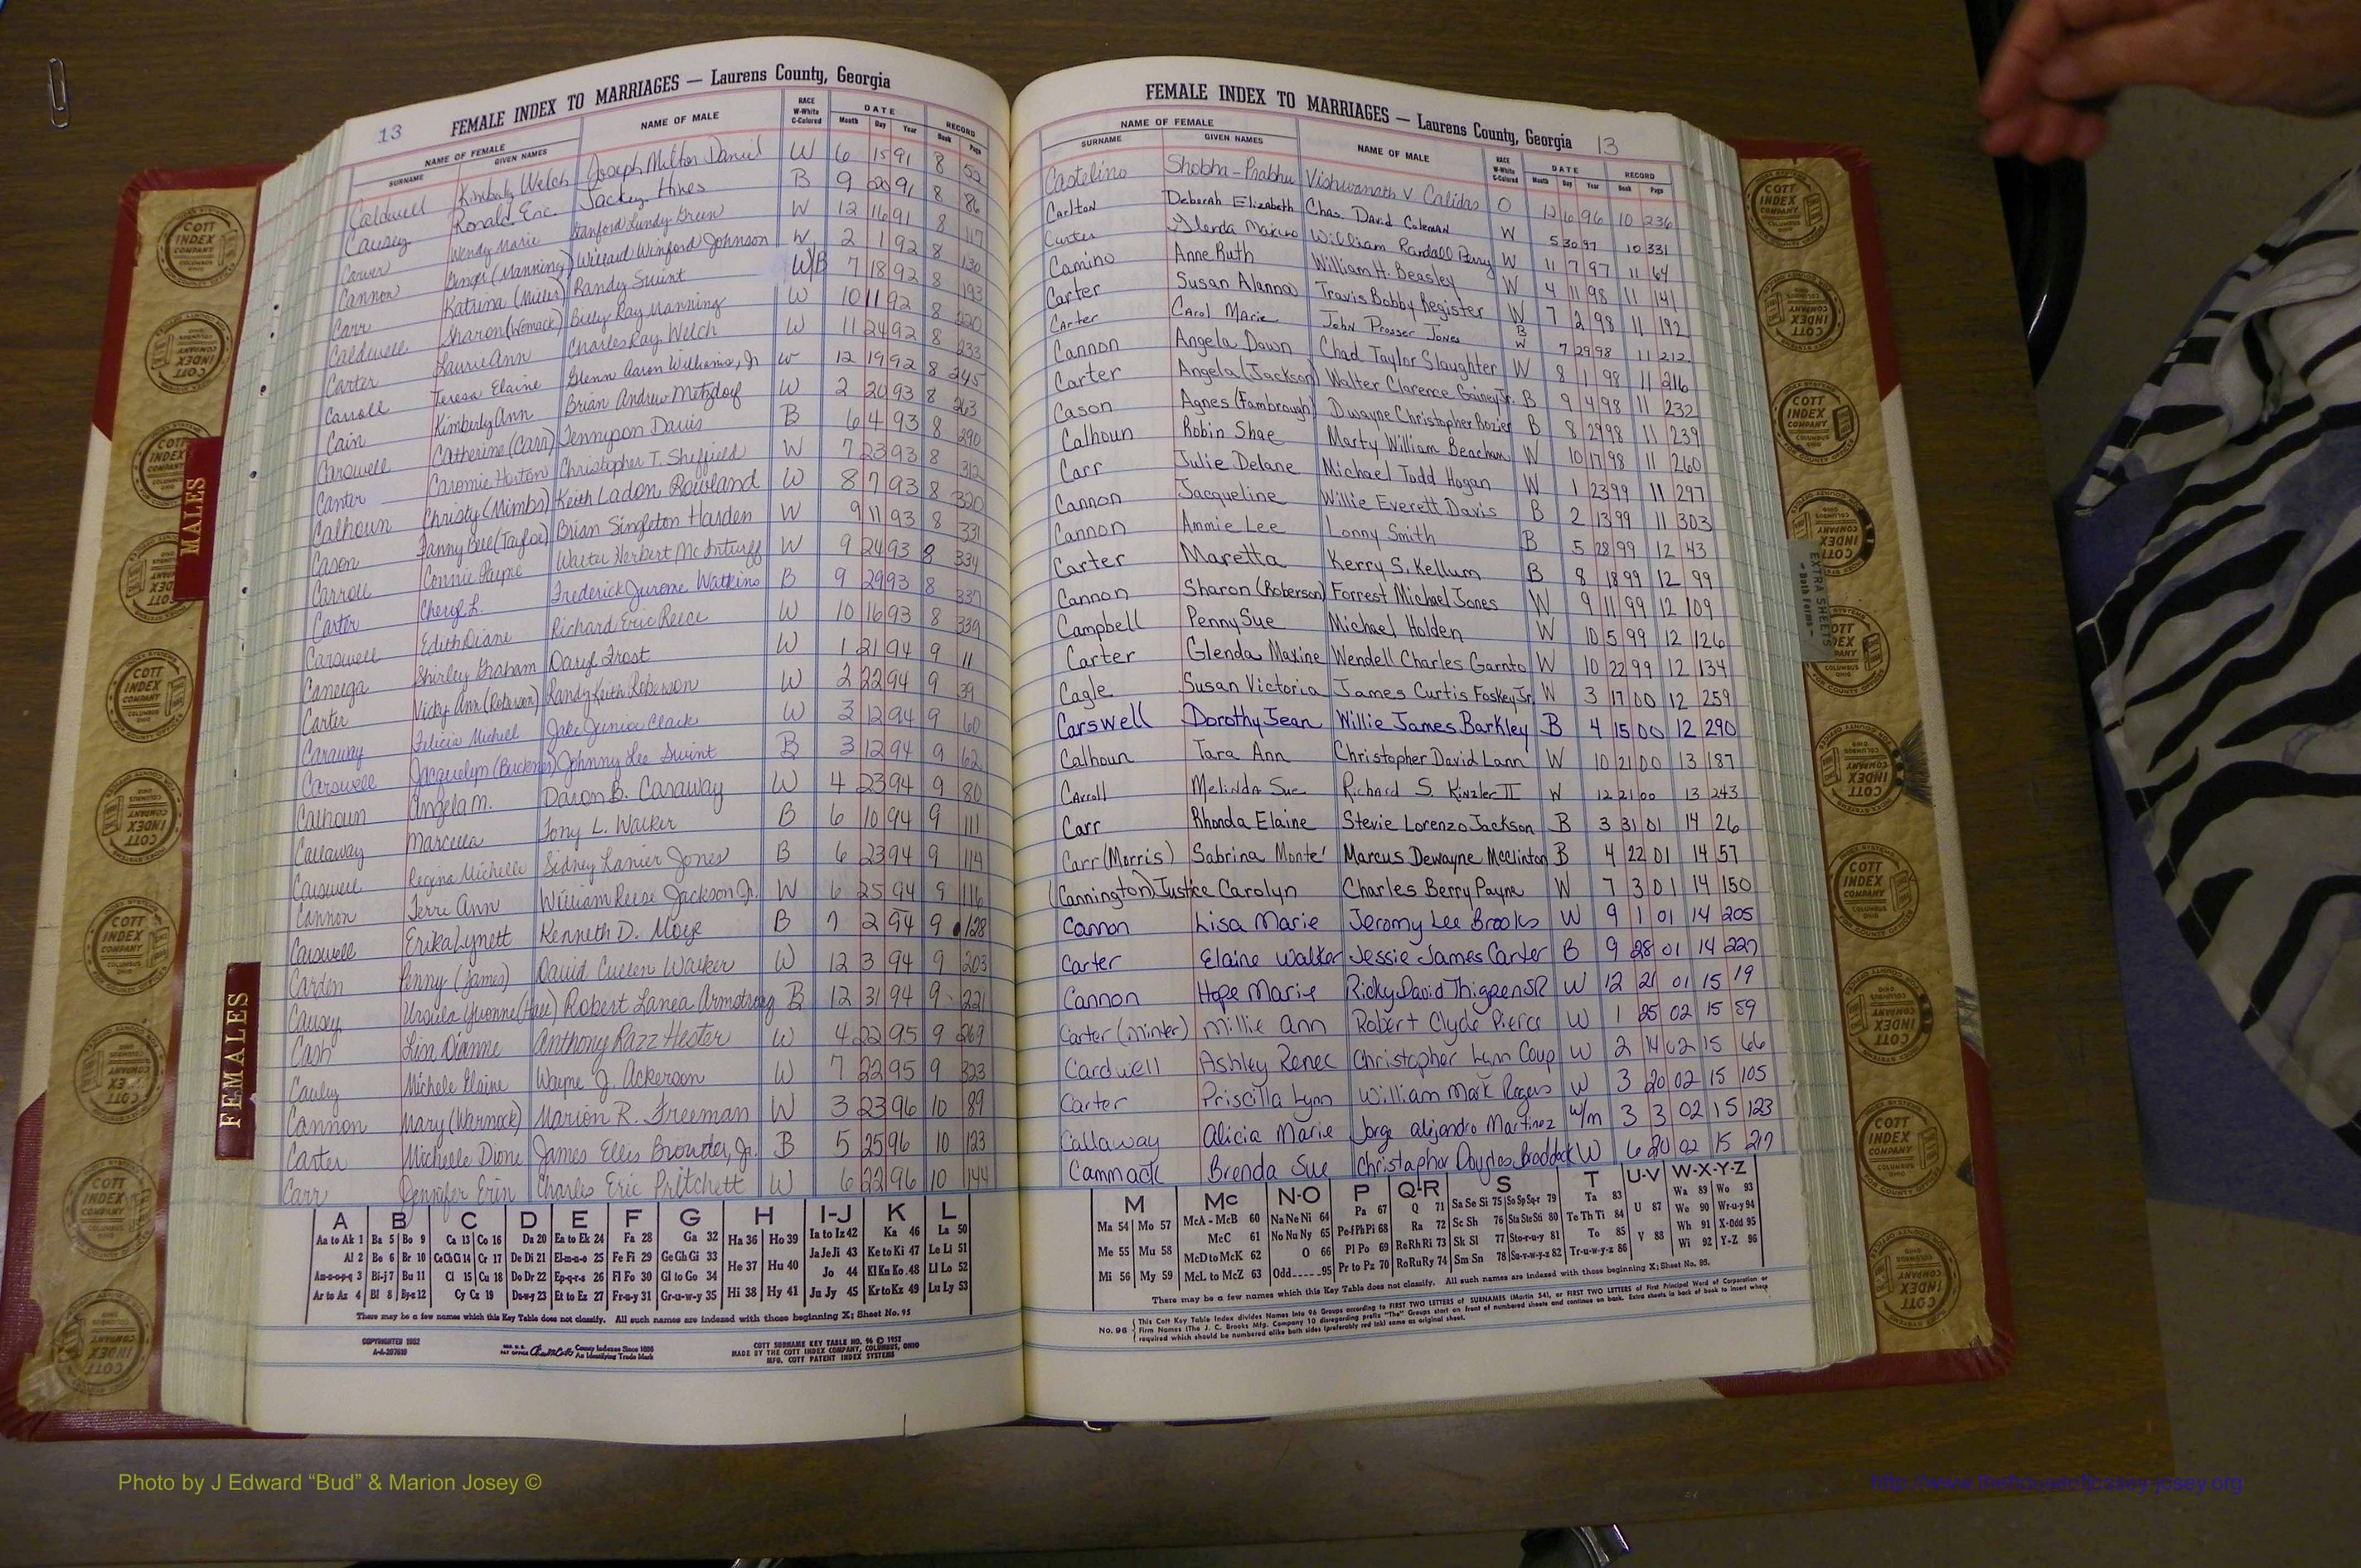 13 FEMALE INDEX TO MARRIAGES — Laurens County, Georgia
NAME OF FEMALE NAME OF MALE RACE DATE RECORD
SURNAME GIVEN NAMES W-White C-Colored Month Day Year Book Page
Caldwell Kimberly Welch Joseph Milton Daniel W 6 15 91 8 52
Causey Ronald Eric Jackey Hines B 9 20 91 8 86
Carver Wendy Marie Stanford Lundy Green W 12 16 91 8 117
Cannon Ginger (Manning) Willard Winford Johnson W 2 1 92 8 130
Carr Katrina (Miller) Randy Swint W/B 7 18 92 8 193
Caldwell Sharon (Womack) Billy Ray Manning W 10 11 92 8 220
Carter Laurie Ann Charles Ray Welch W 11 24 92 8 233
Carroll Teresa Elaine Glenn Aaron Williams, Jr W 12 19 92 8 245
Cain Kimberly Ann Brian Andrew Metzdorf W 2 20 93 8 263
Carswell Catherine (Carr) Tennyson Davis B 6 4 93 8 290
Canter Caromie Horton Christopher T. Sheffield W 7 23 93 8 312
Calhoun Christy (Mimbs) Keith Ladon Rowland W 8 7 93 8 320
Cason Fanny Bell (Taylor) Brian Singleton Harden W 9 11 93 8 331
Carroll Connie Payne Walter Herbert McInturff W 9 24 93 8 334
Carter Cheryl L. Frederick Jerome Watkins B 9 29 93 8 337
Carswell Edith Diane Richard Eric Reece W 10 16 93 8 339
Caneega Shirley Graham Daryl Frost W 1 21 94 9 11
Carter Vicky Ann (Roberson) Randy Keith Roberson W 2 22 94 9 39
Caraway Felicia Michell Jake Junior Clark W 3 12 94 9 60
Carswell Jacquelyn (Buckner) Johnny Lee Swint B 3 12 94 9 62
Calhoun Angela M. Daron B. Caraway W 4 23 94 9 80
Callaway Marcella Tony L. Walker B 6 10 94 9 111
Carswell Regina Michelle Sidney Lanier Jones B 6 23 94 9 114
Cannon Terre Ann William Reese Jackson Jr. W 6 25 94 9 116
Carswell Erika Lynett Kenneth D. Moye B 7 2 94 9 128
Carden Penny (James) David Cullen Walker W 12 3 94 9 203
Causey Ursula Yvonne (Hall) Robert Lanea Armstrong B 12 31 94 9 221
Cash Lisa Dianne Anthony Razz Hester W 4 22 95 9 269
Cauley Michele Elaine Wayne J. Ackerson W 7 22 95 9 323
Cannon Mary (Warnock) Marion R. Freeman W 3 23 96 10 89
Carter Michelle Dione James Ellis Browder, Jr. B 5 25 96 10 123
Carr Jennifer Erin Charles Eric Pritchett W 6 22 96 10 144
A B C D E F G H I-J K L
Aa to Ak 1 Ba 5 Bo 9 Ca 13 Co 16 Da 20 Ea to Ek 24 Fa 28 Ga 32 Ha 36 Ho 39 Ia to Iz 42 Ka 46 La 50
Al 2 Be 6 Br 10 Ce Ch Ci 14 Cr 17 De Di 21 El-m-n-o 25 Fe Fi 29 Ge Gh Gi 33 He 37 Hu 40 Ja Je Ji 43 Ke to Ki 47 Le Li 51
Am-n-o-p-q 3 Bi-j 7 Bu 11 Cl 15 Cu 18 Do Dr 22 Ep-q-r-s 26 Fl Fo 30 Gl to Go 34 Hi 38 Hy 41 Jo 44 Kl Kn Ko 48 Ll Lo 52
Ar to Az 4 Bl 8 By-z 12 Cy Cz 19 Du-w-y 23 Et to Ez 27 Fr-u-y 31 Gr-u-w-y 35 Ju Jy 45 Kr to Kz 49 Lu Ly 53
There may be a few names which this Key Table does not classify. All such names are indexed with those beginning X; Sheet No. 95
COPYRIGHTED 1952
COTT SURNAME KEY TABLE NO. 96 © 1952
MADE BY THE COTT INDEX COMPANY, COLUMBUS, OHIO
MFG. COTT PATENT INDEX SYSTEMS
County Indexes Since 1888
An Identifying Trade Mark
FEMALE INDEX TO MARRIAGES — Laurens County, Georgia 13
NAME OF FEMALE NAME OF MALE RACE DATE RECORD
SURNAME GIVEN NAMES W-White C-Colored Month Day Year Book Page
Castelino Shobha-Prabhu Vishwanath V Calidas O 12 6 96 10 236
Carlton Deborah Elizabeth Chas. David Coleman W 5 30 97 10 331
Carter Glenda Maxine William Randall Perry W 11 7 97 11 64
Camino Anne Ruth William H. Beasley W 4 11 98 11 141
Carter Susan Alanna Travis Bobby Register W 7 2 98 11 192
Carter Carol Marie John Prosser Jones B W 7 29 98 11 212
Cannon Angela Dawn Chad Taylor Slaughter W 8 1 98 11 216
Carter Angela (Jackson) Walter Clarence Gainey Jr. B 9 4 98 11 232
Cason Agnes (Fambrough) Dwayne Christopher Rozier B 8 29 98 11 239
Calhoun Robin Shae Marty William Beacham W 10 17 98 11 260
Carr Julie Delane Michael Todd Hogan W 1 23 99 11 297
Cannon Jacqueline Willie Everett Davis B 2 13 99 11 303
Cannon Ammie Lee Lonny Smith B 5 28 99 12 43
Carter Maretta Kerry S. Kellum B 8 18 99 12 99
Cannon Sharon (Roberson) Forrest Michael Jones W 9 11 99 12 109
Campbell Penny Sue Michael Holden W 10 5 99 12 126
Carter Glenda Maxine Wendell Charles Garnto W 10 22 99 12 134
Cagle Susan Victoria James Curtis Foskey Jr. W 3 17 00 12 259
Carswell Dorothy Jean Willie James Barkley B 4 15 00 12 290
Calhoun Tara Ann Christopher David Lann W 10 21 00 13 187
Carroll Melinda Sue Richard S. Kinzler II W 12 21 00 13 243
Carr Rhonda Elaine Stevie Lorenzo Jackson B 3 31 01 14 26
Carr (Morris) Sabrina Monte' Marcus Dewayne McClinton B 4 22 01 14 57
(Cannington) Justice Carolyn Charles Berry Payne W 7 3 01 14 150
Cannon Lisa Marie Jeromy Lee Brooks W 9 1 01 14 205
Carter Elaine Walker Jessie James Carter B 9 28 01 14 227
Cannon Hope Marie Ricky David Thigpen SR W 12 21 01 15 19
Carter (Minter) Millie Ann Robert Clyde Pierce W 1 25 02 15 59
Cardwell Ashley Renee Christopher Lynn Coup W 2 14 02 15 66
Carter Priscilla Lynn William Mark Rogers W 3 20 02 15 105
Callaway Alicia Marie Jorge Alejandro Martinez W/M 3 3 02 15 123
Cammack Brenda Sue Christopher Douglas Braddock W 6 20 02 15 217
M Mc N-O P Q-R S T U-V W-X-Y-Z
Ma 54 Mo 57 McA - McB 60 Na Ne Ni 64 Pa 67 Q 71 Sa Se Si 75 So Sp Sq-r 79 Ta 83 U 87 Wa 89 Wo 93
Me 55 Mu 58 McC 61 No Nu Ny 65 Pe-f Ph Pi 68 Ra 72 Sc Sh 76 Sta Ste Sti 80 Te Th Ti 84 V 88 We 90 Wr-u-y 94
Mi 56 My 59 McD to McK 62 O 66 Pl Po 69 Re Rh Ri 73 Sk Sl 77 Sto-r-u-y 81 To 85 Wh 91 X-Odd 95
McL to McZ 63 Odd 95 Pr to Pz 70 Ro Ru Ry 74 Sm Sn 78 Su-v-w-y-z 82 Tr-u-w-y-z 86 Wi 92 Y-Z 96
There may be a few names which this Key Table does not classify. All such names are indexed with those beginning X; Sheet No. 95.
No. 96 This Cott Key Table Index divides Names into 96 Groups according to FIRST TWO LETTERS of SURNAMES (Martin 54), or FIRST TWO LETTERS of First Principal Word of Corporation or
Firm Names (The J. C. Brooks Mfg. Company 10 disregarding prefix "The" Groups start on front of numbered sheets and continue on back. Extra sheets in back of book to insert where
required which should be numbered alike both sides (preferably red ink) same as original sheet.
MALES
FEMALES
EXTRA SHEETS
— Both Forms —
COTT INDEX COMPANY COLUMBUS OHIO
INDEX SYSTEMS FOR COUNTY OFFICES
Photo by J Edward “Bud” & Marion Josey ©
http://www.thehouseofjossey-josey.org